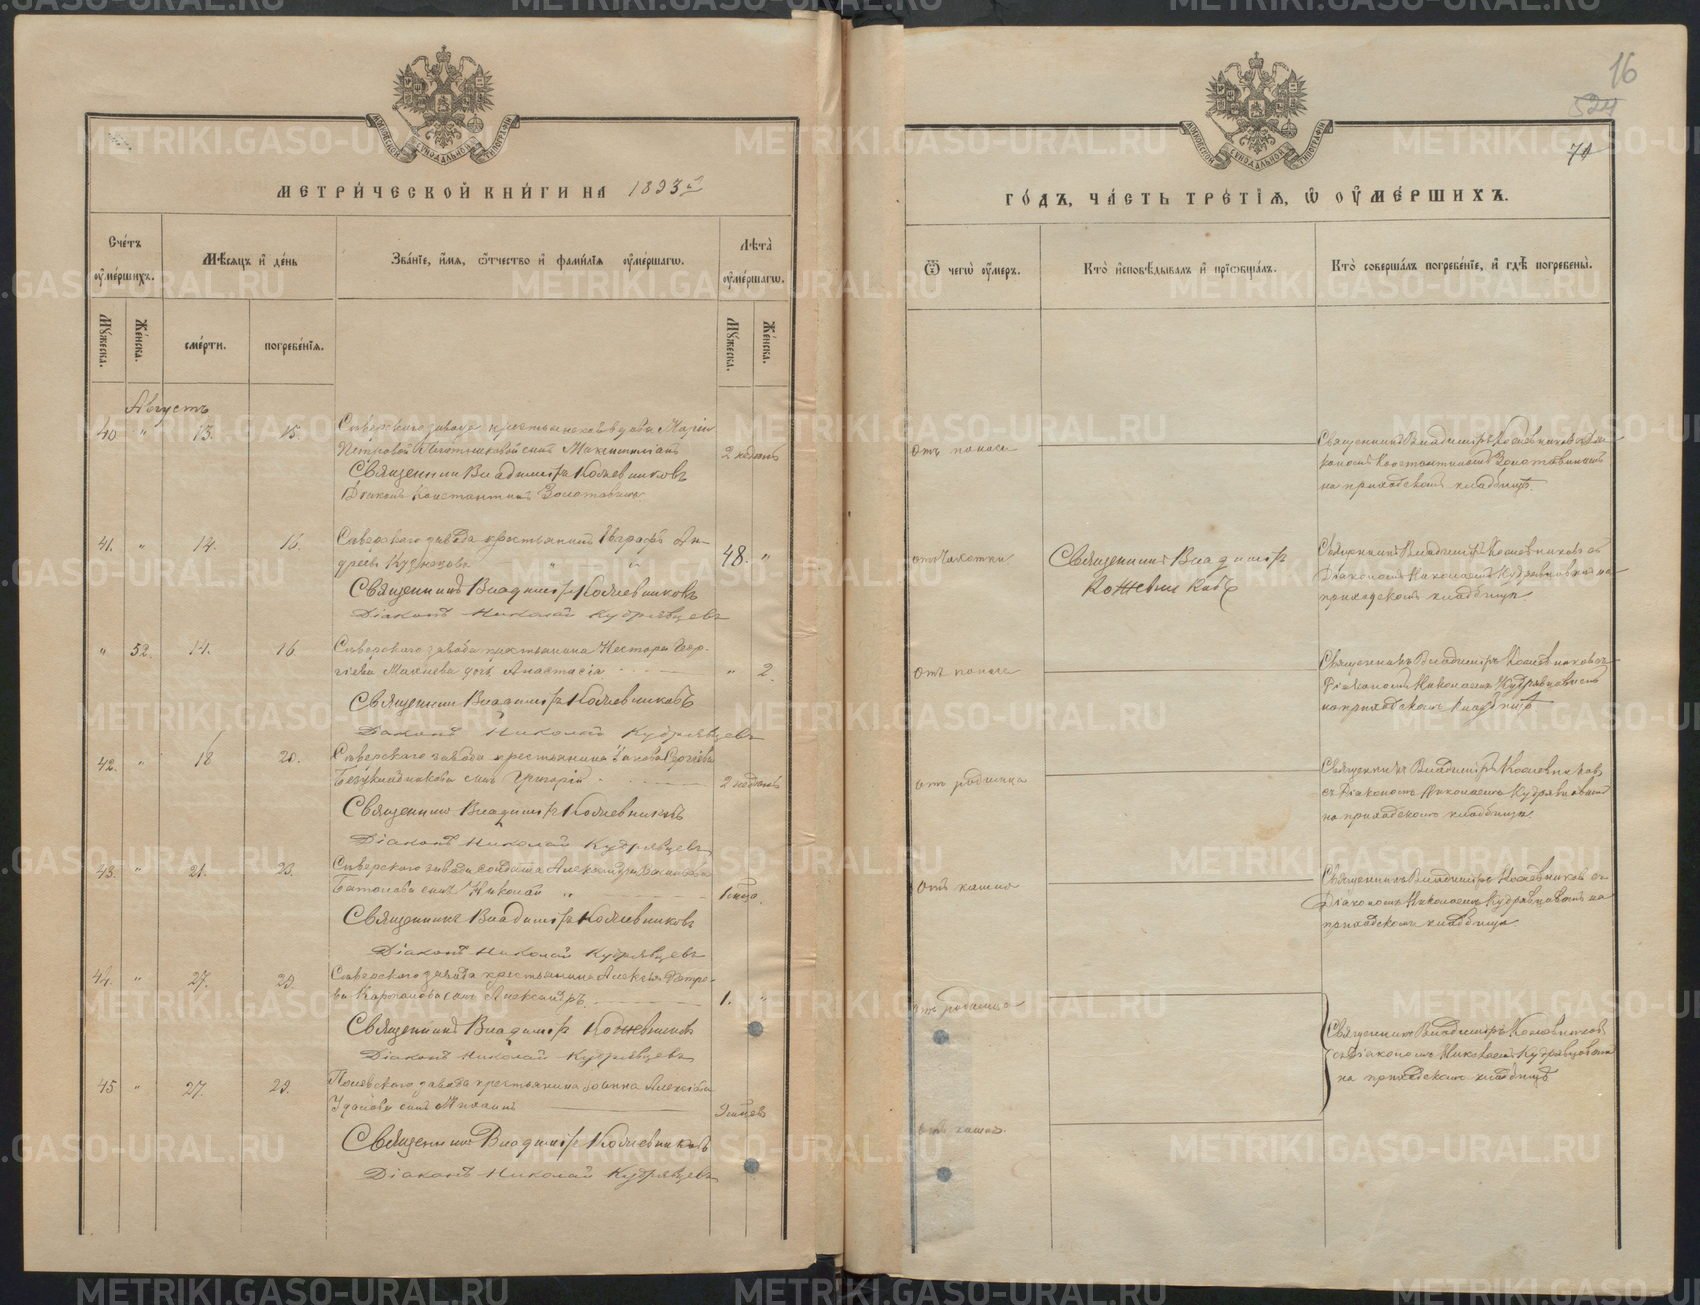 16
524
70
МОСКОВСКОЙ СѴНОДАЛЬНОЙ ТИПОГРАФІИ
МЕТРИ́ЧЕСКОЙ КНИ́ГИ НА 1893 г.
Сче́тъ оу҆ме́ршихъ.
Мѣ́сяцъ и҆ де́нь
Зва́нїе, и҆́мѧ, ѻ҆́тчество и҆ фами́лїѧ оу҆ме́ршагѡ.
Лѣ́та оу҆ме́ршагѡ.
Мꙋ́жеска.
Же́нска.
сме́рти.
погребе́нїѧ.
Мꙋ́жеска.
Же́нска.
Августъ
40 " 13. 15.
Сѣверскаго завода крестьянской вдовы Маріи
Петровой сынъ Максимиліанъ
2 недѣль
Священникъ Владиміръ Кожевниковъ
Діаконъ Константинъ Золотавинъ
41. " 14. 16.
Сѣверскаго завода крестьянинъ Евграфъ Ан-
дреевъ Кузнецовъ
48. "
Священникъ Владиміръ Кожевниковъ
Діаконъ Николай Кудрявцевъ
" 52. 14. 16
Сѣверскаго завода крестьянина Нестора Геор-
гіева дочь Анастасія
" 2.
Священникъ Владиміръ Кожевниковъ
Діаконъ Николай Кудрявцевъ
42. " 18 20.
Сѣверскаго завода крестьянина Іакова Сергіева
сынъ Григорій
2 недѣль
Священникъ Владиміръ Кожевниковъ
Діаконъ Николай Кудрявцевъ
43. " 21. 23.
Сѣверскаго завода солдата Александра
сынъ Николай
1 мѣсяца.
Священникъ Владиміръ Кожевниковъ
Діаконъ Николай Кудрявцевъ
44. " 27. 29.
Сѣверскаго завода крестьянина Алексѣя Петро-
ва сынъ Александръ
1. "
Священникъ Владиміръ Кожевниковъ
Діаконъ Николай Кудрявцевъ
45 " 27. 29.
Полевскаго завода крестьянина Іоанна Алексѣева
сынъ Михаилъ
9 мѣсяцев
Священникъ Владиміръ Кожевниковъ
Діаконъ Николай Кудрявцевъ
МОСКОВСКОЙ СѴНОДАЛЬНОЙ ТИПОГРАФІИ
ГО́ДЪ, ЧА́СТЬ ТРЕ́ТІЯ, Ѡ҆ ОУ҆МЕ́РШИХЪ.
Ѿ чегѡ̀ оу҆́меръ.
Кто̀ и҆сповѣ́дывалъ и҆ прїѡбща́лъ.
Кто̀ соверша́лъ погребе́нїе, и҆ гдѣ̀ погребены̀.
отъ поноса
Священникъ Владиміръ Кожевниковъ съ Діа-
кономъ Константиномъ Золотавинымъ
на приходскомъ кладбищѣ.
отъ чахотки
Священникъ Владиміръ
Кожевниковъ
Священникъ Владиміръ Кожевниковъ съ
Діакономъ Николаемъ Кудрявцевымъ на
приходскомъ кладбищѣ.
отъ поноса
Священникъ Владиміръ Кожевниковъ съ
Діакономъ Николаемъ Кудрявцевымъ
на приходскомъ кладбищѣ
отъ родимца
Священникъ Владиміръ Кожевниковъ
съ Діакономъ Николаемъ Кудрявцевымъ
на приходскомъ кладбищѣ.
отъ кашля
Священникъ Владиміръ Кожевниковъ съ
Діакономъ Николаемъ Кудрявцевымъ на
приходскомъ кладбищѣ
отъ родимца
Священникъ Владиміръ Кожевниковъ
съ Діакономъ Николаемъ Кудрявцевымъ
на приходскомъ кладбищѣ
отъ кашля.
METRIKI.GASO-URAL.RU